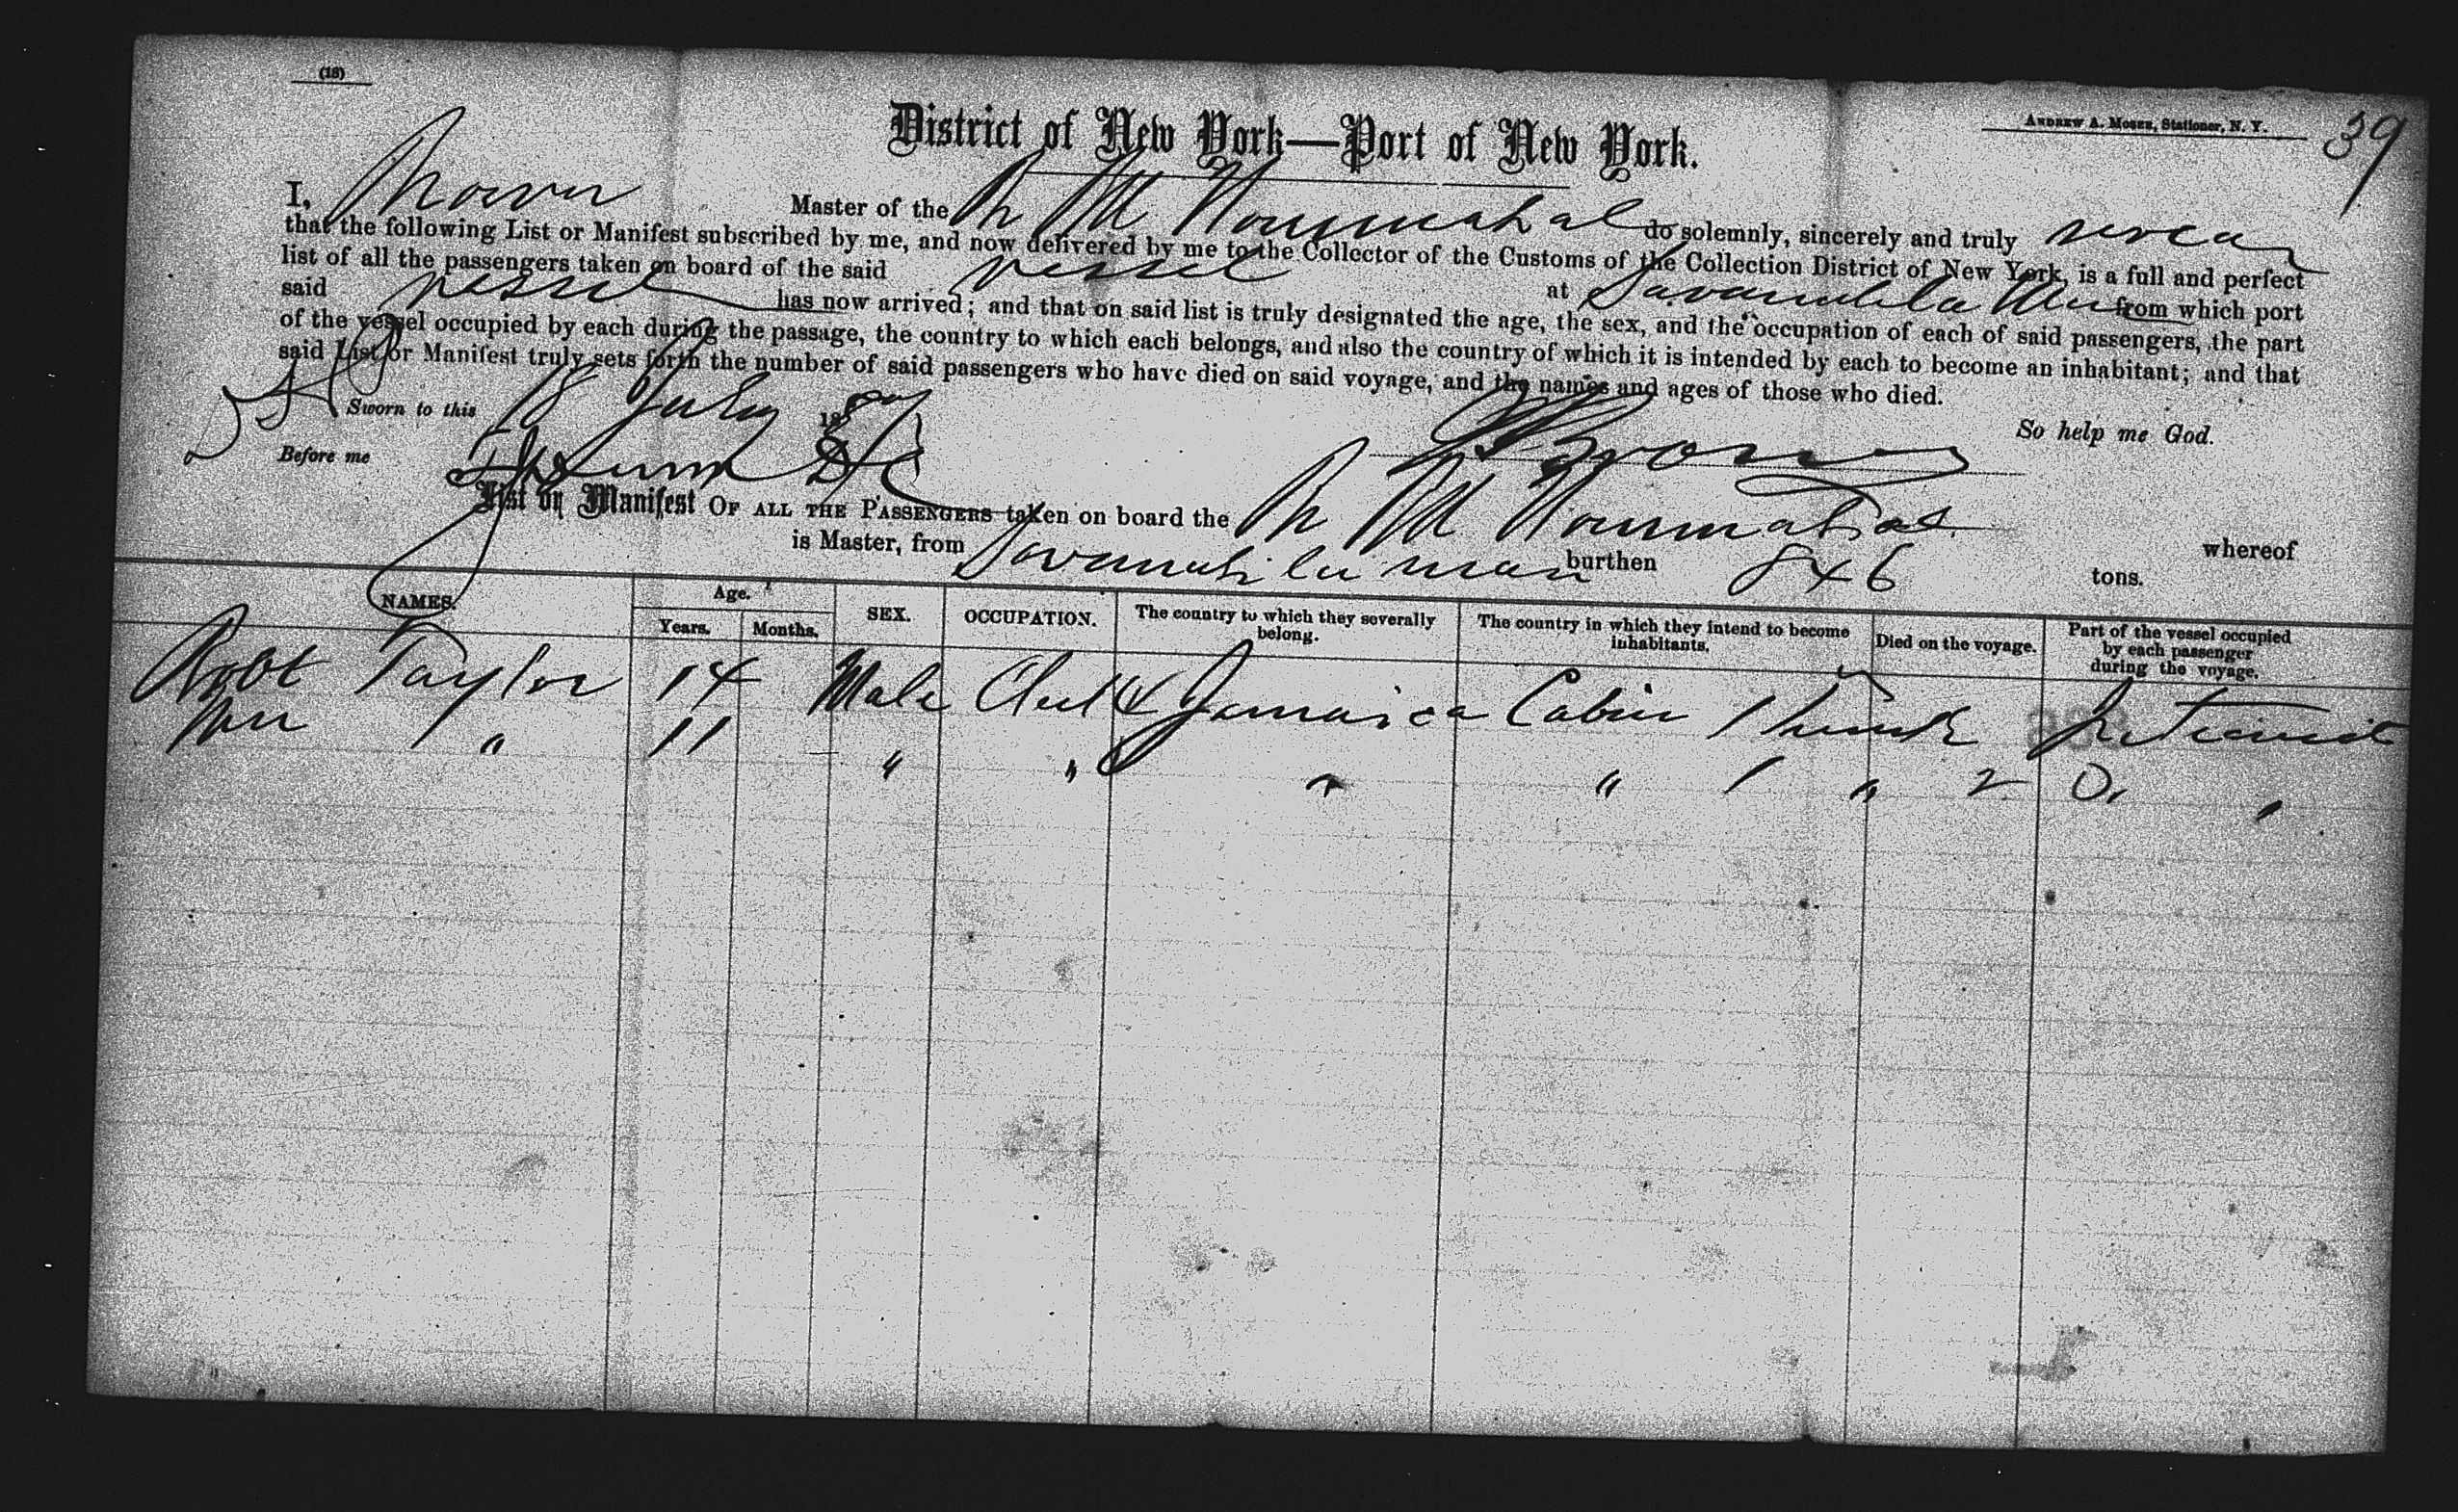 (18)
ANDREW A. MOSER, Stationer, N. Y.
39
District of New York—Port of New York.
I, Brown Master of the Br Str Nourmahal do solemnly, sincerely and truly swear
that the following List or Manifest subscribed by me, and now delivered by me to the Collector of the Customs of the Collection District of New York, is a full and perfect
list of all the passengers taken on board of the said vessel at Savannah la Mar from which port
said vessel has now arrived; and that on said list is truly designated the age, the sex, and the occupation of each of said passengers, the part
of the vessel occupied by each during the passage, the country to which each belongs, and also the country of which it is intended by each to become an inhabitant; and that
said List or Manifest truly sets forth the number of said passengers who have died on said voyage, and the names and ages of those who died.
So help me God.
Sworn to this 18 July 1887
Brown
Before me
List or Manifest OF ALL THE PASSENGERS taken on board the Br Nourmahal whereof
is Master, from Savannah la mar burthen 846 tons.
NAMES. Age. Years. Months. SEX. OCCUPATION. The country to which they severally belong. The country in which they intend to become inhabitants. Died on the voyage. Part of the vessel occupied by each passenger during the voyage.
Robt Taylor 14 Male Jamaica Cabin 1 trunk In transit
Wm " 11 " " " " 1 " 2 Do "